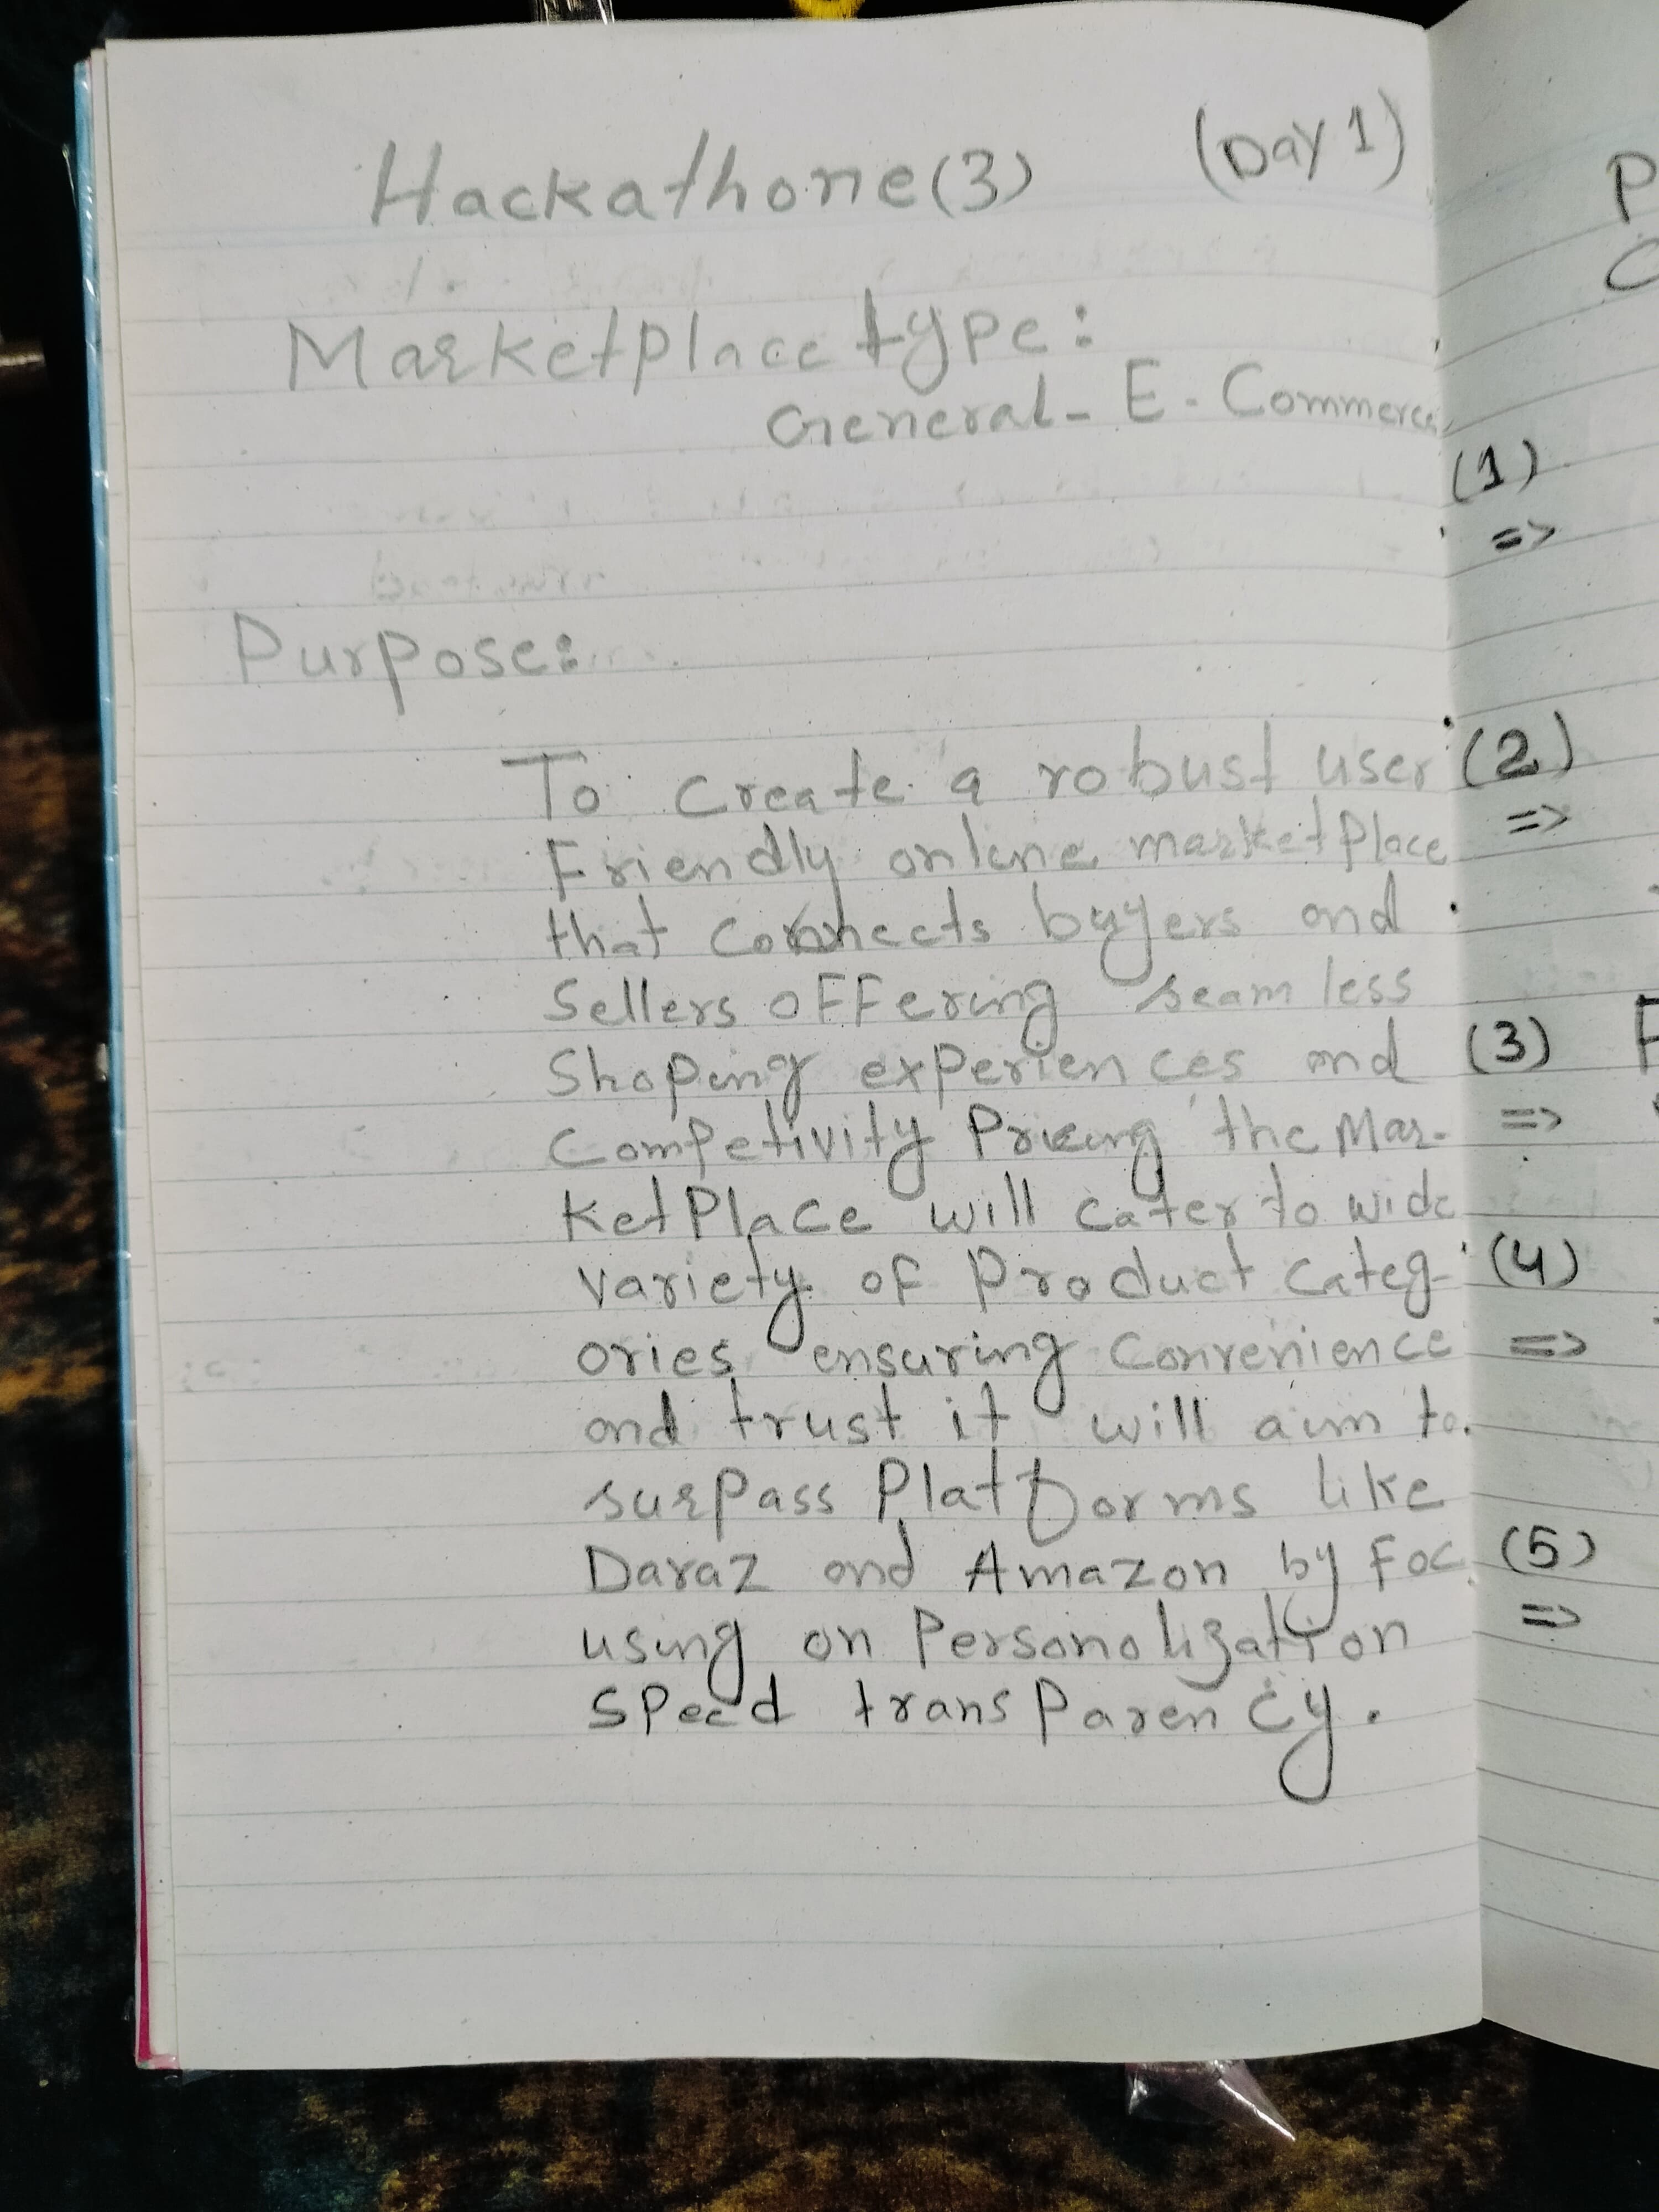 Hackathone(3) (Day 1)
Marketplace type:
General - E - Commerce
Purpose:
To create a robust user
Friendly online marketplace
that connects buyers and
Sellers offering seamless
Shoping experiences and
Competivity Pricing the Mar-
ketPlace will cater to wide
variety of Product categ-
ories ensuring convenience
and trust it will aim to
surpass Platforms like
Daraz and Amazon by Foc
using on Personalization
Speed transparency.
P
C
(1)
=>
(2)
=>
(3) F
=>
(4)
=>
(5)
=>